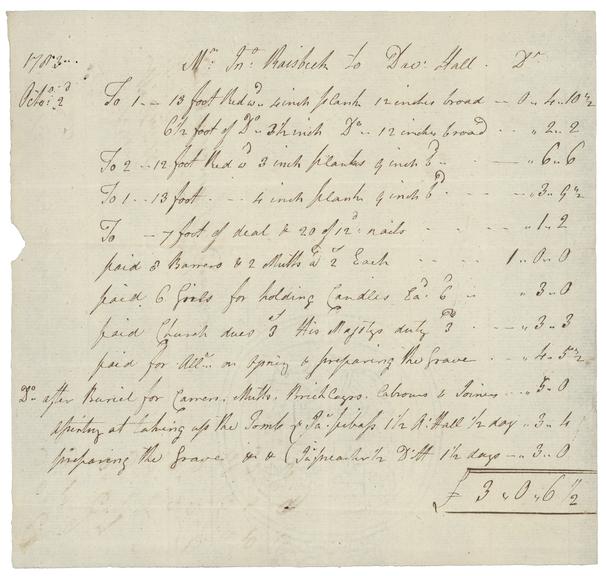 1783... Mr. Jno. Raisbeck to Dav: Hall. Dr
Octor: 2d To 1 .. 13 foot Redwd 4 inch plank 12 inches broad -- 0 .. 4 .. 10 1/2
6 1/2 foot of Do .. 3 1/2 inch Do -- 12 inches broad .. " 2 .. 2
To 2 .. 12 foot Red wd 3 inch planks 9 inch bd .. -- " 6 .. 6
To 1 .. 13 foot .. .. 4 inch plank 9 inch bd .. -- .. 3 .. 9 1/2
To -- 7 foot of deal & 20 of 12d nails .. .. " 1 .. 2
paid 8 Barrers & 2 Mutts at 2s Each .. .. 1 .. 0 .. 0
paid 6 Girls for holding Candles Ea: 6d .. " 3 .. 0
paid Church dues 3s His Majestys duty 3d .. -- 3 .. 3
paid for Alle on opning & preparing the Grave .. .. 4 .. 5 1/2
Do after Buriel for Carrers, Mutts, Bricklayrs, Labrours & Joiners .. .. 5 .. 0
at taking up the Tomb & 1 1/2 R: Hall 1/2 day .. 3 .. 4
preparing the Grave &c &c 1/2 D: H 1 1/2 days -- .. 3 .. 0
£ 3 " 0 " 6 1/2